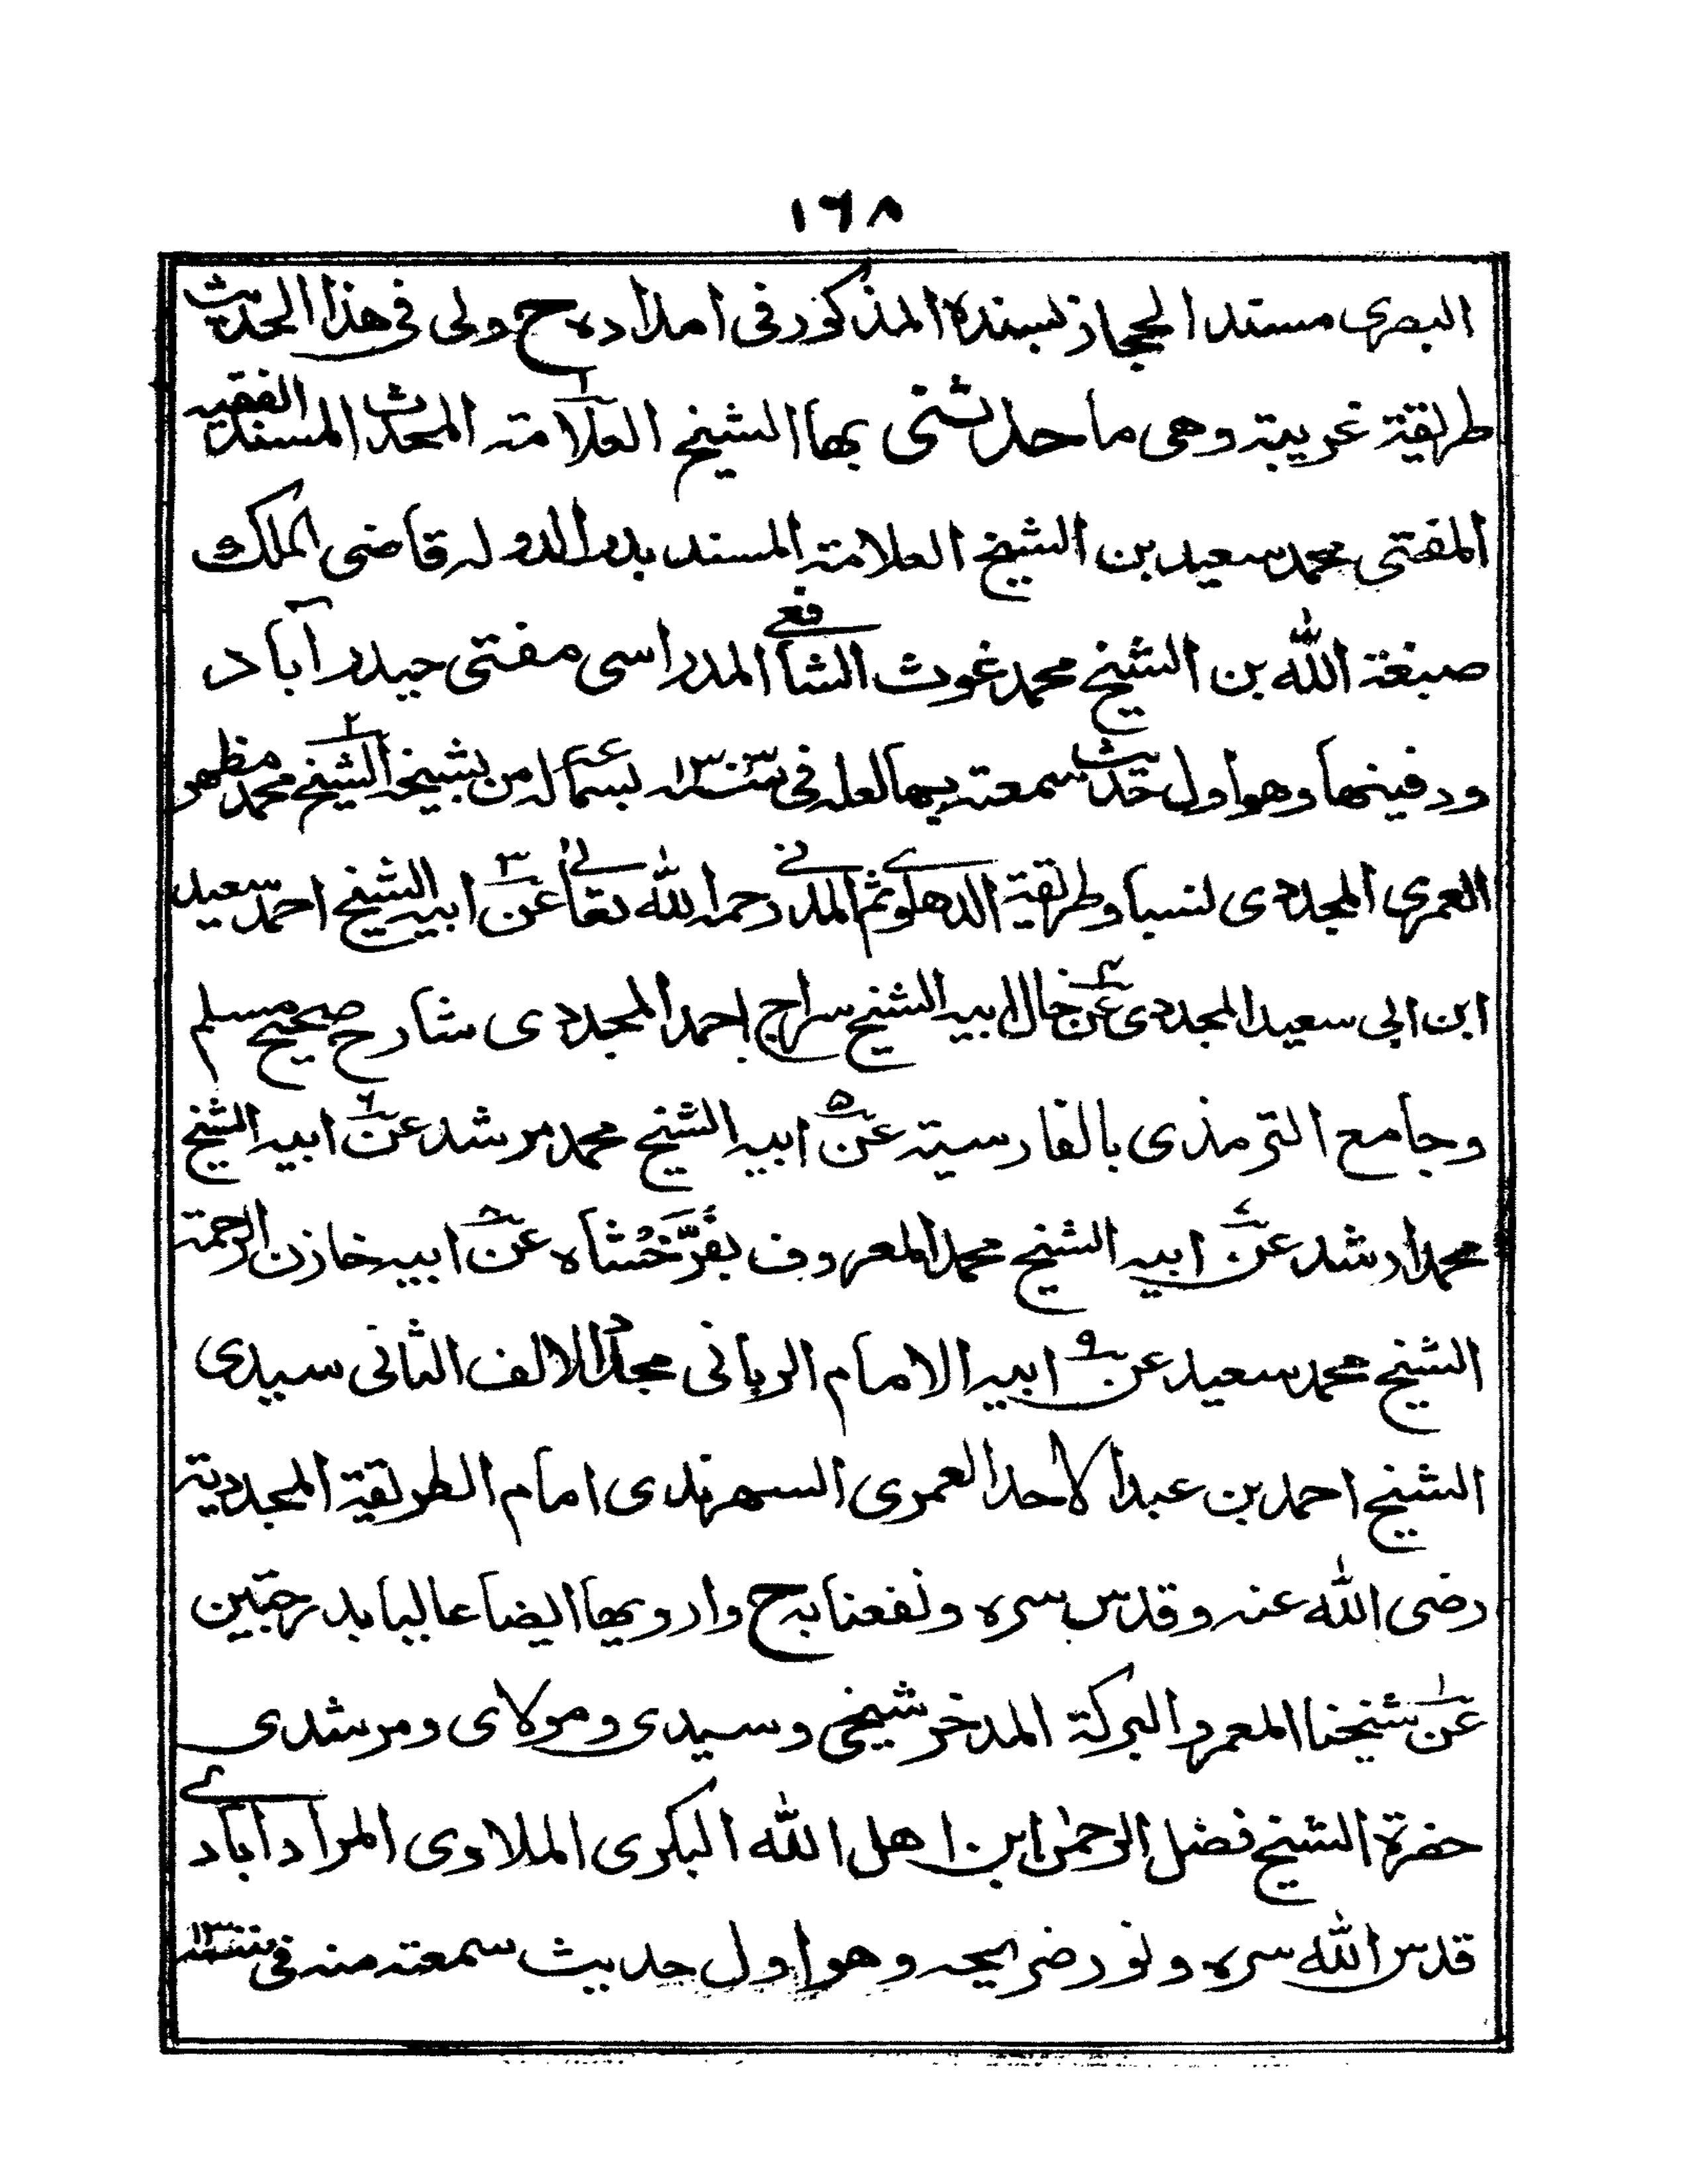 ١٦٨
البصرى مسند الحجاز بسنده المذكور فى امداده ح ولى فى هذا الحديث
طريقة غريبة وهى ما حدثنى بها الشيخ العلامة المحدث المسند الفقيه
المفتى محمد سعيد بن الشيخ العلامة المسند بدر الدوله قاضى الملك
صبغة الله بن الشيخ محمد غوث الشافعى المدراسى مفتى حيدرآباد
ودفينها وهو اول حديث سمعته بها لعله فى سنه بسماعه من شيخه الشيخ محمد مظهر
العمرى المجددى نسبا وطريقة الدهلوى ثم المدنى رحمه الله تعالى عن ابيه الشيخ احمد سعيد
ابن ابى سعيد المجددى عن خال ابيه الشيخ سراج احمد المجددى شارح صحيح مسلم
وجامع الترمذى بالفارسية عن ابيه الشيخ محمد مرشد عن ابيه الشيخ
محمد ارشد عن ابيه الشيخ محمد المعروف بفَرُّخشاه عن ابيه خازن الرحمة
الشيخ محمد سعيد عن ابيه الامام الربانى مجدد الالف الثانى سيدى
الشيخ احمد بن عبد الاحد العمروى السهرندى امام الطريقة المجددية
رضى الله عنه وقدس سره ونفعنا به ح وارويها ايضا عاليا بدرجتين
عن شيخنا المعمر والبركة المدخر شيخى وسيدى ومولاى ومرشدى
حضرة الشيخ فضل الرحمٰن ابن اهل الله البكرى الملاوى المرادآبادى
قدس الله سره ونور ضريحه وهو اول حديث سمعته منه فى سنه